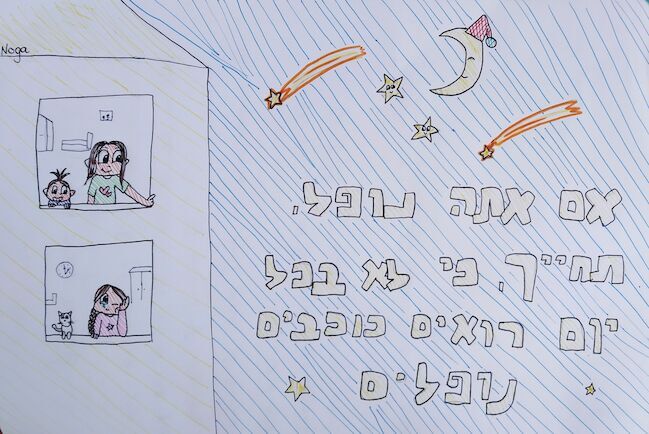 Noga
אם אתה נופל,
תחייך, כי לא בכל
יום רואים כוכבים
נופלים